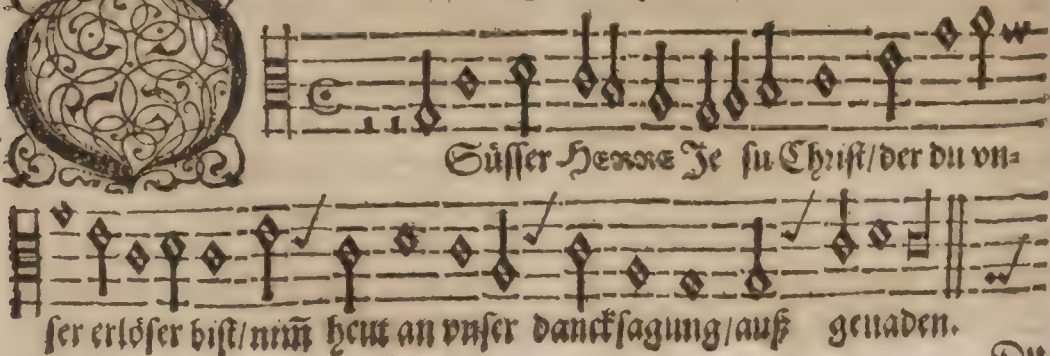 O Süsser HERRE Je su Christ/der du vn=
ser erlöser bist/nim̃ heut an vnser dancksagung/auß genaden.